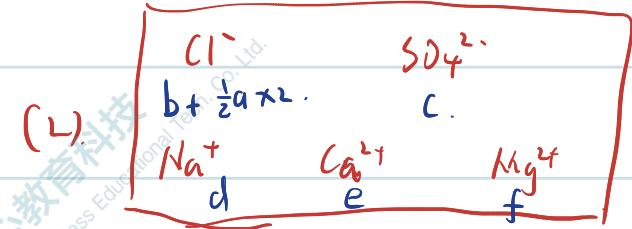 Cl⁻ SO₄²⁻
b + ½a × 2. c.
(2)
Na⁺ Ca²⁺ Mg²⁺
d e f
教育科技
ess Educational Tech. Co. Ltd.